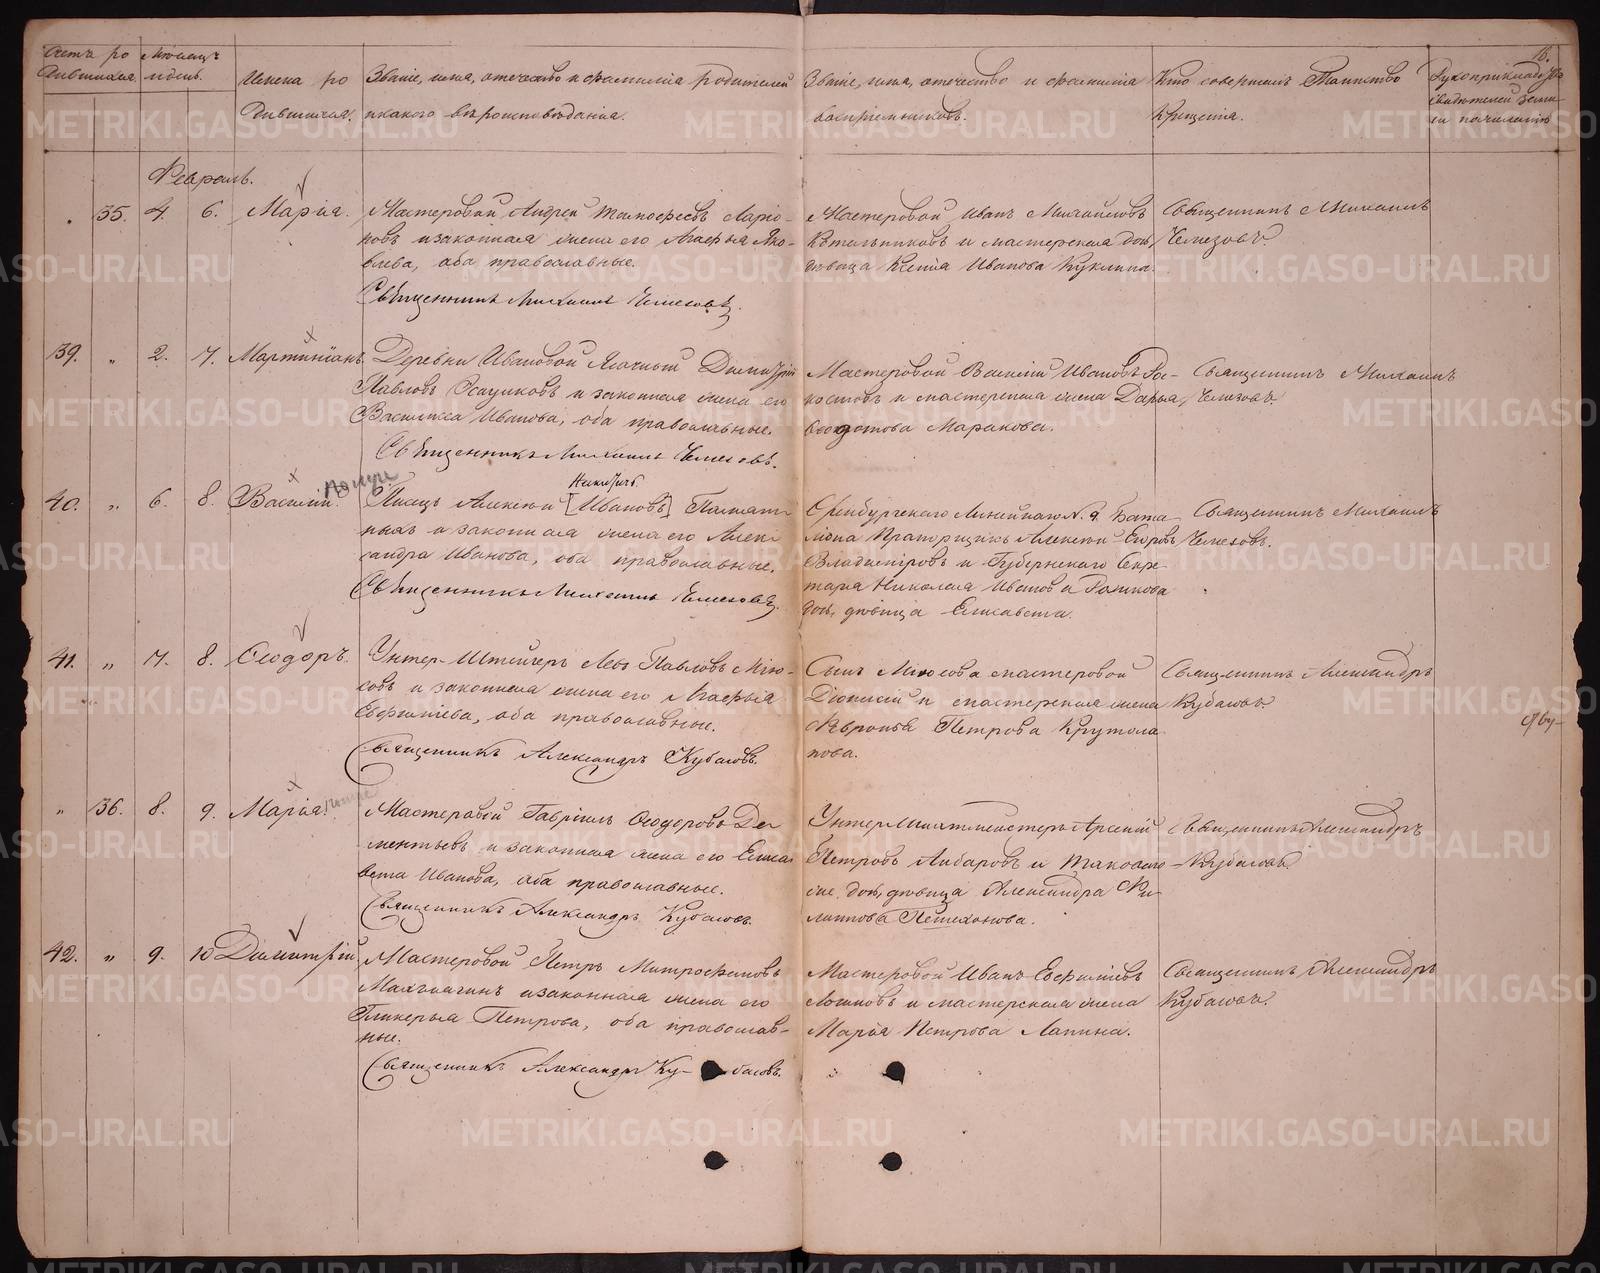 16.
Счетъ ро
дившихся.
Мѣсяцъ
и день.
Имена ро
дившихся.
Званіе, имя, отечество и фамилія родителей
и какого вѣроисповѣданія.
Званіе, имя, отечество и фамилія
воспріемниковъ.
Кто совершалъ Таинство
Крещенія.
Рукоприкладство
свидѣтелей записи
по желанію
Февраль.
35. 4. 6. Марія.
Мастеровой Андрей Тимофеевъ Ларіо-
новъ и законная жена его Агафья Яко-
влева, оба православные.
Священникъ Михаилъ Чемезовъ.
Мастеровой Иванъ Михайловъ
Котельниковъ и мастерская дочь,
дѣвица Ксенія Иванова Куклина.
Священникъ Михаилъ
Чемезовъ.
39. „ 2. 7. Мартиніанъ.
Деревни Ивановой Димитрій
Павловъ Осинцовъ и законная жена его
Василиса Иванова, оба православные.
Священникъ Михаилъ Чемезовъ.
Мастеровой Василій Ивановъ
и мастерская жена Дарья
Ѳеодотова Маракова.
Священникъ Михаилъ
Чемезовъ.
40. „ 6. 8. Василій.
Никитичъ
Писецъ Алексѣй [Ивановъ]
и законная жена его Алек-
сандра Иванова, оба православные.
Священникъ Михаилъ Чемезовъ.
Оренбургскаго Линейнаго № 9. Бата-
ліона Прапорщикъ Алексѣй Егоровъ
Владиміровъ и Губернскаго Секре-
таря Николая Иванова
дочь, дѣвица Елисавета.
Священникъ Михаилъ
Чемезовъ.
41. „ 7. 8. Ѳеодоръ.
Унтер-Штейгеръ Левъ Павловъ Мѣю-
совъ и законная жена его Агафья
Евфиміева, оба православные.
Священникъ Александръ Кубасовъ.
Сынъ мастеровой
Діонисій и мастерская жена
Февронья Петрова Крутола-
пова.
Священникъ Александръ
Кубасовъ.
„ 36. 8. 9. Марія.
Мастеровой Гавріилъ Ѳеодоровъ Де-
ментьевъ и законная жена его Елиса-
вета Иванова, оба православные.
Священникъ Александръ Кубасовъ.
Унтершихтмейстеръ Арсеній
Петровъ Анбаровъ и таковаго
же дочь, дѣвица Александра Фи-
липпова Пешехонова.
Священникъ Александръ
Кубасовъ.
42. „ 9. 10 Димитрій.
Мастеровой Петръ Митрофановъ
и законная жена его
Гликерья Петрова, оба православ-
ные.
Священникъ Александръ Ку-басовъ.
Мастеровой Иванъ Евфиміевъ
Логиновъ и мастерская жена
Марія Петрова Лапина.
Священникъ Александръ
Кубасовъ.
METRIKI.GASO-URAL.RU